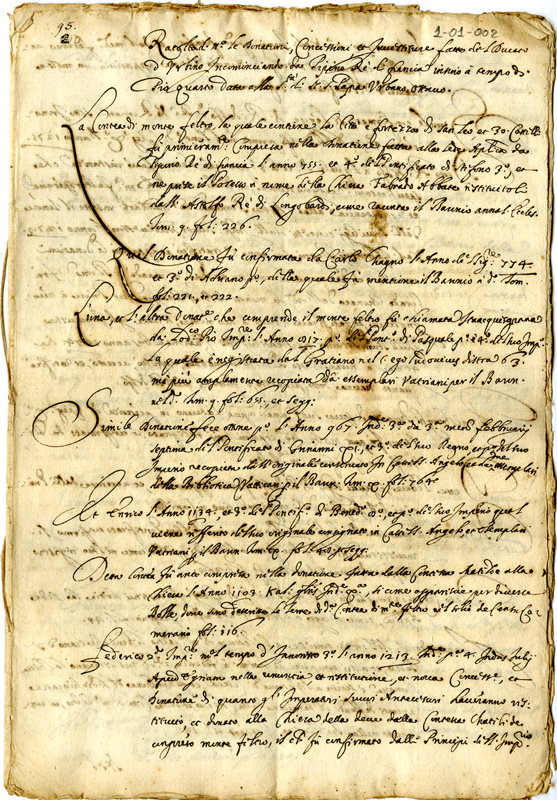 95.
2
1-01-002
Racolta di tutte le Donationi, Concessioni et Investiture fatte del Ducato
d'Urbino Incominciando da Pipino Re di francia insino à tempo di
Pio quarto data alla S.tà di N. S. Papa Urbano ottavo.
La Contea di monte feltro, la quale contiene la Città e fortezza di San Leo et 30 Castelli
fù primieram.te Compresa nella Donatione fatta alla sede Ap.lica da
Pipino Rè di francia l'anno 755. et 4.o del Pontificato di Stefano 3.o, et
ne prese il Possesso à nome della Chiesa Fulrado Abbate
Ast Rè di Longobardi, come racconta il Baronio annal. Eccles.
Tom. 9. fol. 226.
Qual Donatione fù confirmata da Carlo Magno l'Anno del Sig.re 774.
et 3.o di Adriano p.o, della quale fà mentione il Baronio n. d. Tom.
fol. 221. et 222.
L'una, et l'altra Donat.e che comprende il monte feltro fù chiamata
da Lod.co Pio Imp.re l'Anno 817. p.o del Pont.o di Pasquale p.o è 4.o del suo Imp.o
La quale è registrata da Gratiano nel C. ego Ludovicus distra 63.
ma più amplamente recopiata da essemplari Vaticani per il Baron.
nel d. Tom. 9. fol. 655. et segg.
Simile Donatione fece Ottone p.o l'Anno 967. Ind. 3.a da 3. mesi Febbrarij
septima del Pontificato di Giovanni XI, et 3.o del suo Regno et p.o del suo
Imperio recopiato dall'originale conservato in Castel S. Angelo et da essemplari
della Bibliotheca Vaticana p. il Baron. Tom. X. fol. 764.
Et Enrico l'Anno 1134. et 3.o del Pontif.o di Bened.o et p.o del suo Imperio quel
viene inserito del suo originale consignato in Castel S. Angelo, et essemplari
Vaticani, p. il Baron. Tom. XI. fol. 48. et segg.
Detta Contea fù anco compresa nella donatione fatta dalla Contessa Matilda alla
Chiesa l'Anno 1103. Kal. Ind. X.a, si come apparisce per diverse
Bolle, dove sono descritte le Terre di d.a Contea di m.te feltro nel libro de Conti Ca-
merano fol. 116.
Federico 2.o Imp.re nel tempo d'Innocentio 3.o l'anno 1213. Ind.e p.a 4. Indus Julij
Apud Egrium nella renuncia et restitutione, et nova Concess.e, et
Donatione di quanto gl'Imperatori suoi Antecessori havevano res-
tituito, et donato alla Chiesa della detta della Contessa Matilde
compreso monte feltro, il che fù confirmato dalli Principi dell'Imp.o